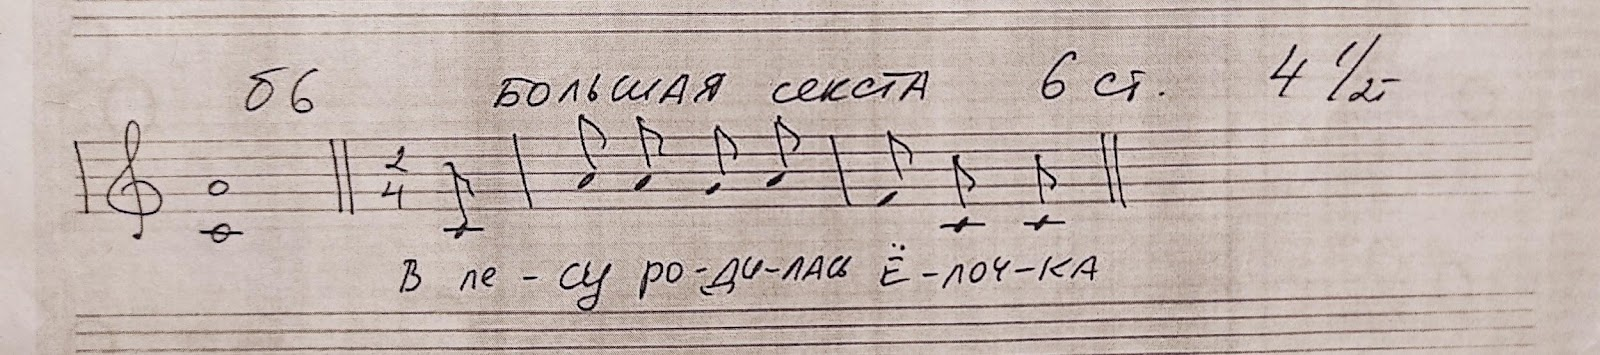 б6 БОЛЬШАЯ СЕКСТА 6 ст. 4 1/2т
2
4
В ле - су ро-ди-лась Ё-лоч-ка